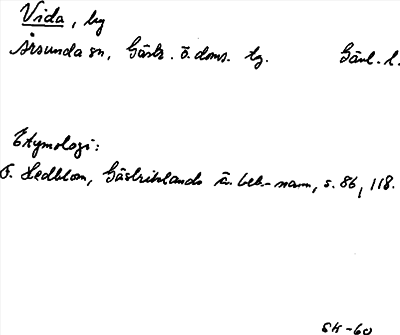 Vida, by
Årsunda sn, Gästr. ö. doms. tg. Gävl. l.
Etymologi:
F. Hedblom, Gästriklands ä. beb.-namn, s. 86, 118.
EK-60